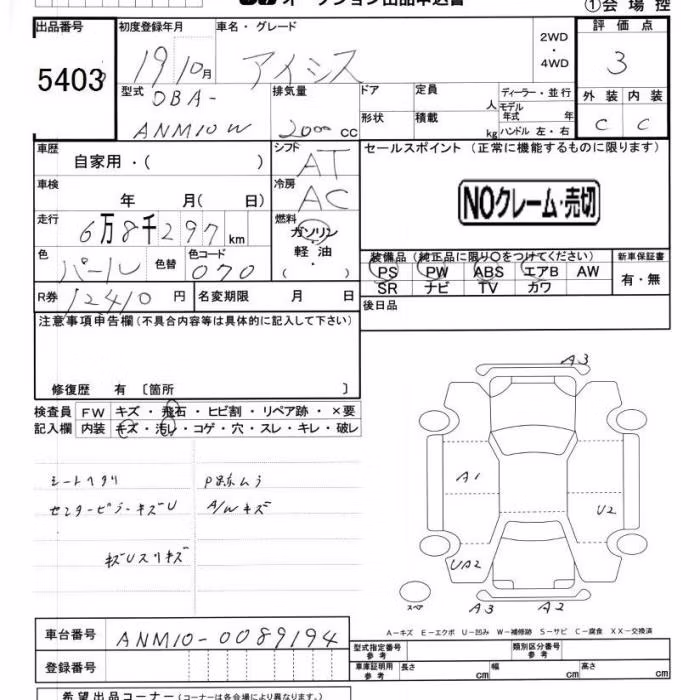 オークション出品申込書
①会場控
出品番号
5403
初度登録年月
19 10月
車名・グレード
アイシス
2WD
・
4WD
評価点
3
型式
DBA-
ANM10W
排気量
2000 cc
ドア
定員
人
ディーラー・並行
モデル
年式 年
形状
積載
kg
ハンドル 左・右
外装 内装
C C
車歴
自家用・( )
シフト
AT
セールスポイント (正常に機能するものに限ります)
NOクレーム・売切
車検
年 月( 日)
冷房
AC
走行
6万8千297km
燃料
ガソリン
軽油
( ・ )
色
パール
色替
色コード
070
装備品 (純正品に限り○をつけてください)
新車保証書
PS PW ABS エアB AW
SR ナビ TV カワ
有・無
R券
12410 円
名変期限 月 日
後日品
注意事項申告欄 (不具合内容等は具体的に記入して下さい)
修復歴 有 〔箇所 〕
検査員
記入欄
FW キズ・飛石・ヒビ割・リペア跡・×要
内装 キズ・汚レ・コゲ・穴・スレ・キレ・破レ
シートヘタリ
P跡ムラ
センターピラーキズU
A/Wキズ
キズUスリキズ
A3
A1
U2
UA2
スペア
A3
A2
A-キズ E-エクボ U-凹み W-補修跡 S-サビ C-腐食 XX-交換済
車台番号
ANM10-0089194
登録番号
型式指定番号
参考
類別区分番号
参考
車庫証明用
参考
長さ cm
幅 cm
高さ cm
希望出品コーナー (コーナーは各会場により異なります。)